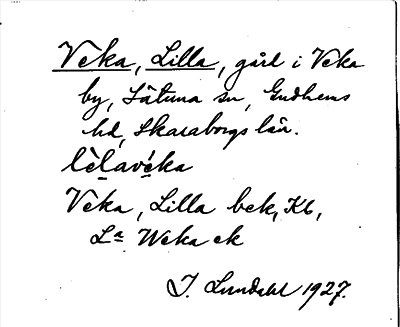 Veka, Lilla, gård i Veka
by, Sätuna sn, Gudhems
hd, Skaraborgs län.
lèlavéka
Veka, Lilla bek, Kb,
La Weka ek
I. Lundahl 1927.